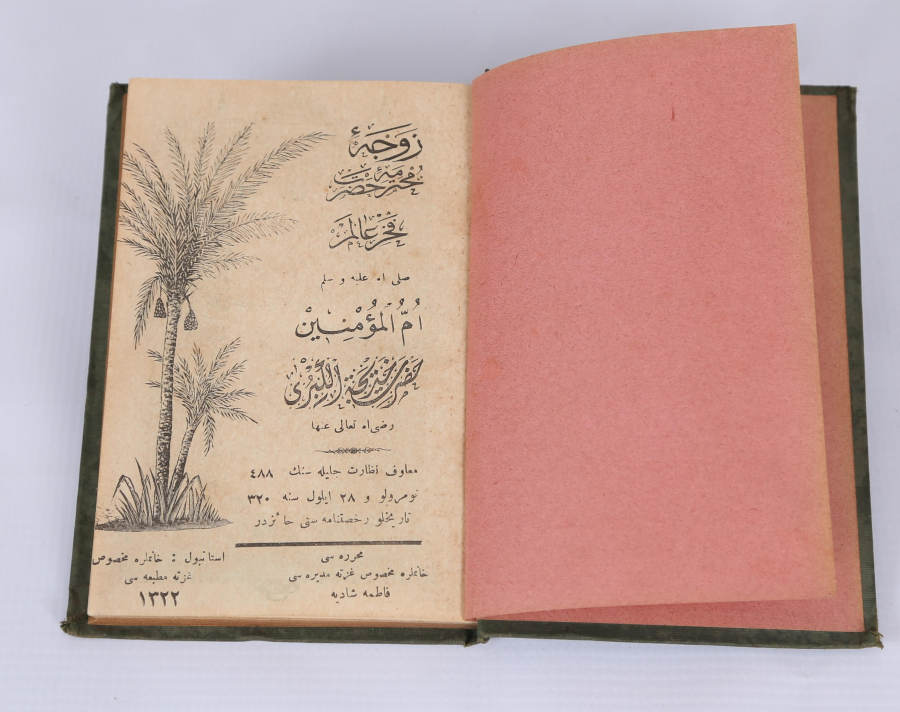 زَوْجَهٔ
محترمهٔ حضرت
فخر عالم
صلى الله عليه و سلم
اُمُّ الْمُؤْمِنِينْ
حضرت خديجة الكبرى
رضى الله تعالى عنها
معارف نظارت جليله سنك ٤٨٨
نومرولو و ٢٨ ايلول سنه ٣٢٠
تاريخلو رخصتنامه سنى حائزدر
محرره سى
خانملره مخصوص غزته مديره سى
فاطمه شاديه
استانبول : خانملره مخصوص
غزته مطبعه سى
١٣٢٢